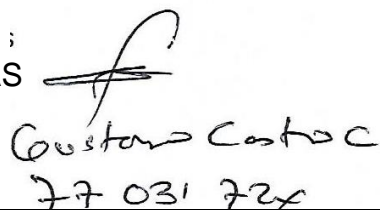 S
Gustavo Castro C
77 031 72x